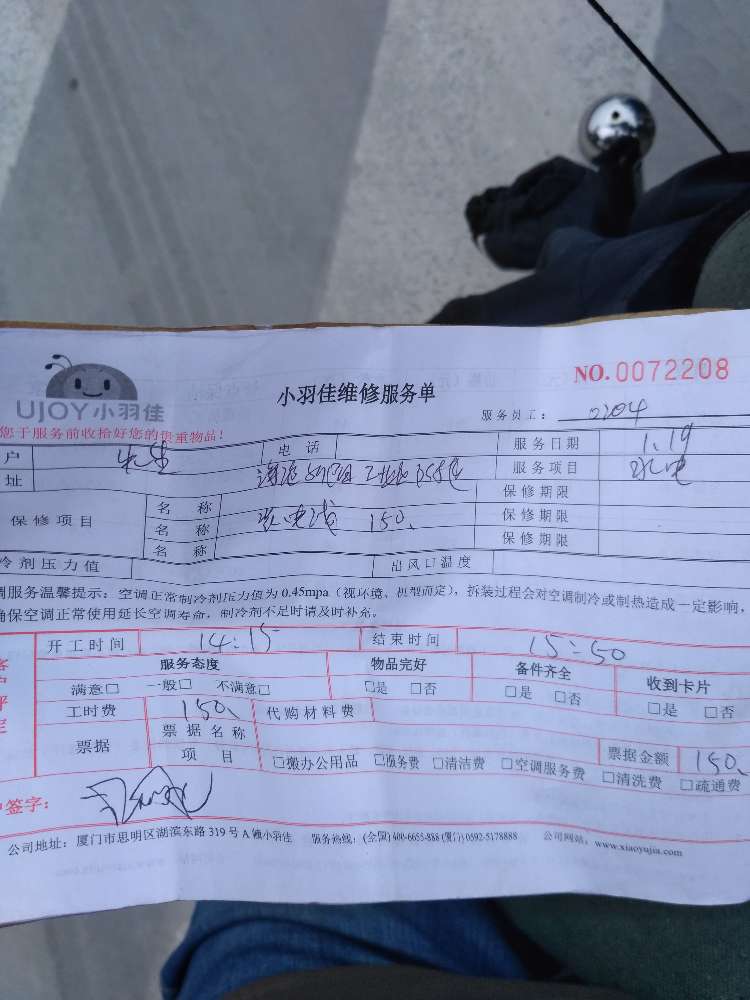 UJOY小羽佳
小羽佳维修服务单
NO.0072208
您于服务前收拾好您的贵重物品!
服务员工: 0204
户 电话 服务日期 1.19
址 服务项目 水电
保修项目 名称 150、 保修期限
名称 保修期限
名称 保修期限
冷剂压力值 出风口温度
调服务温馨提示:空调正常制冷剂压力值为 0.45mpa(视环境、机型而定),拆装过程会对空调制冷或制热造成一定影响,
确保空调正常使用延长空调寿命,制冷剂不足时请及时补充。
开工时间 14:15 结束时间 15:50
服务态度 物品完好 备件齐全 收到卡片
满意□ 一般□ 不满意□ □是 □否 □是 □否 □是 □否
工时费 150、 代购材料费
票据 票据名称
项目 □搬办公用品 □服务费 □清洁费 □空调服务费 □清洗费 □疏通费 票据金额 150、
户签字:
公司地址:厦门市思明区湖滨东路 319 号 A 幢小羽佳 服务热线:(全国) 400-6655-888 (厦门) 0592-5178888 公司网站:www.xiaoyujia.com